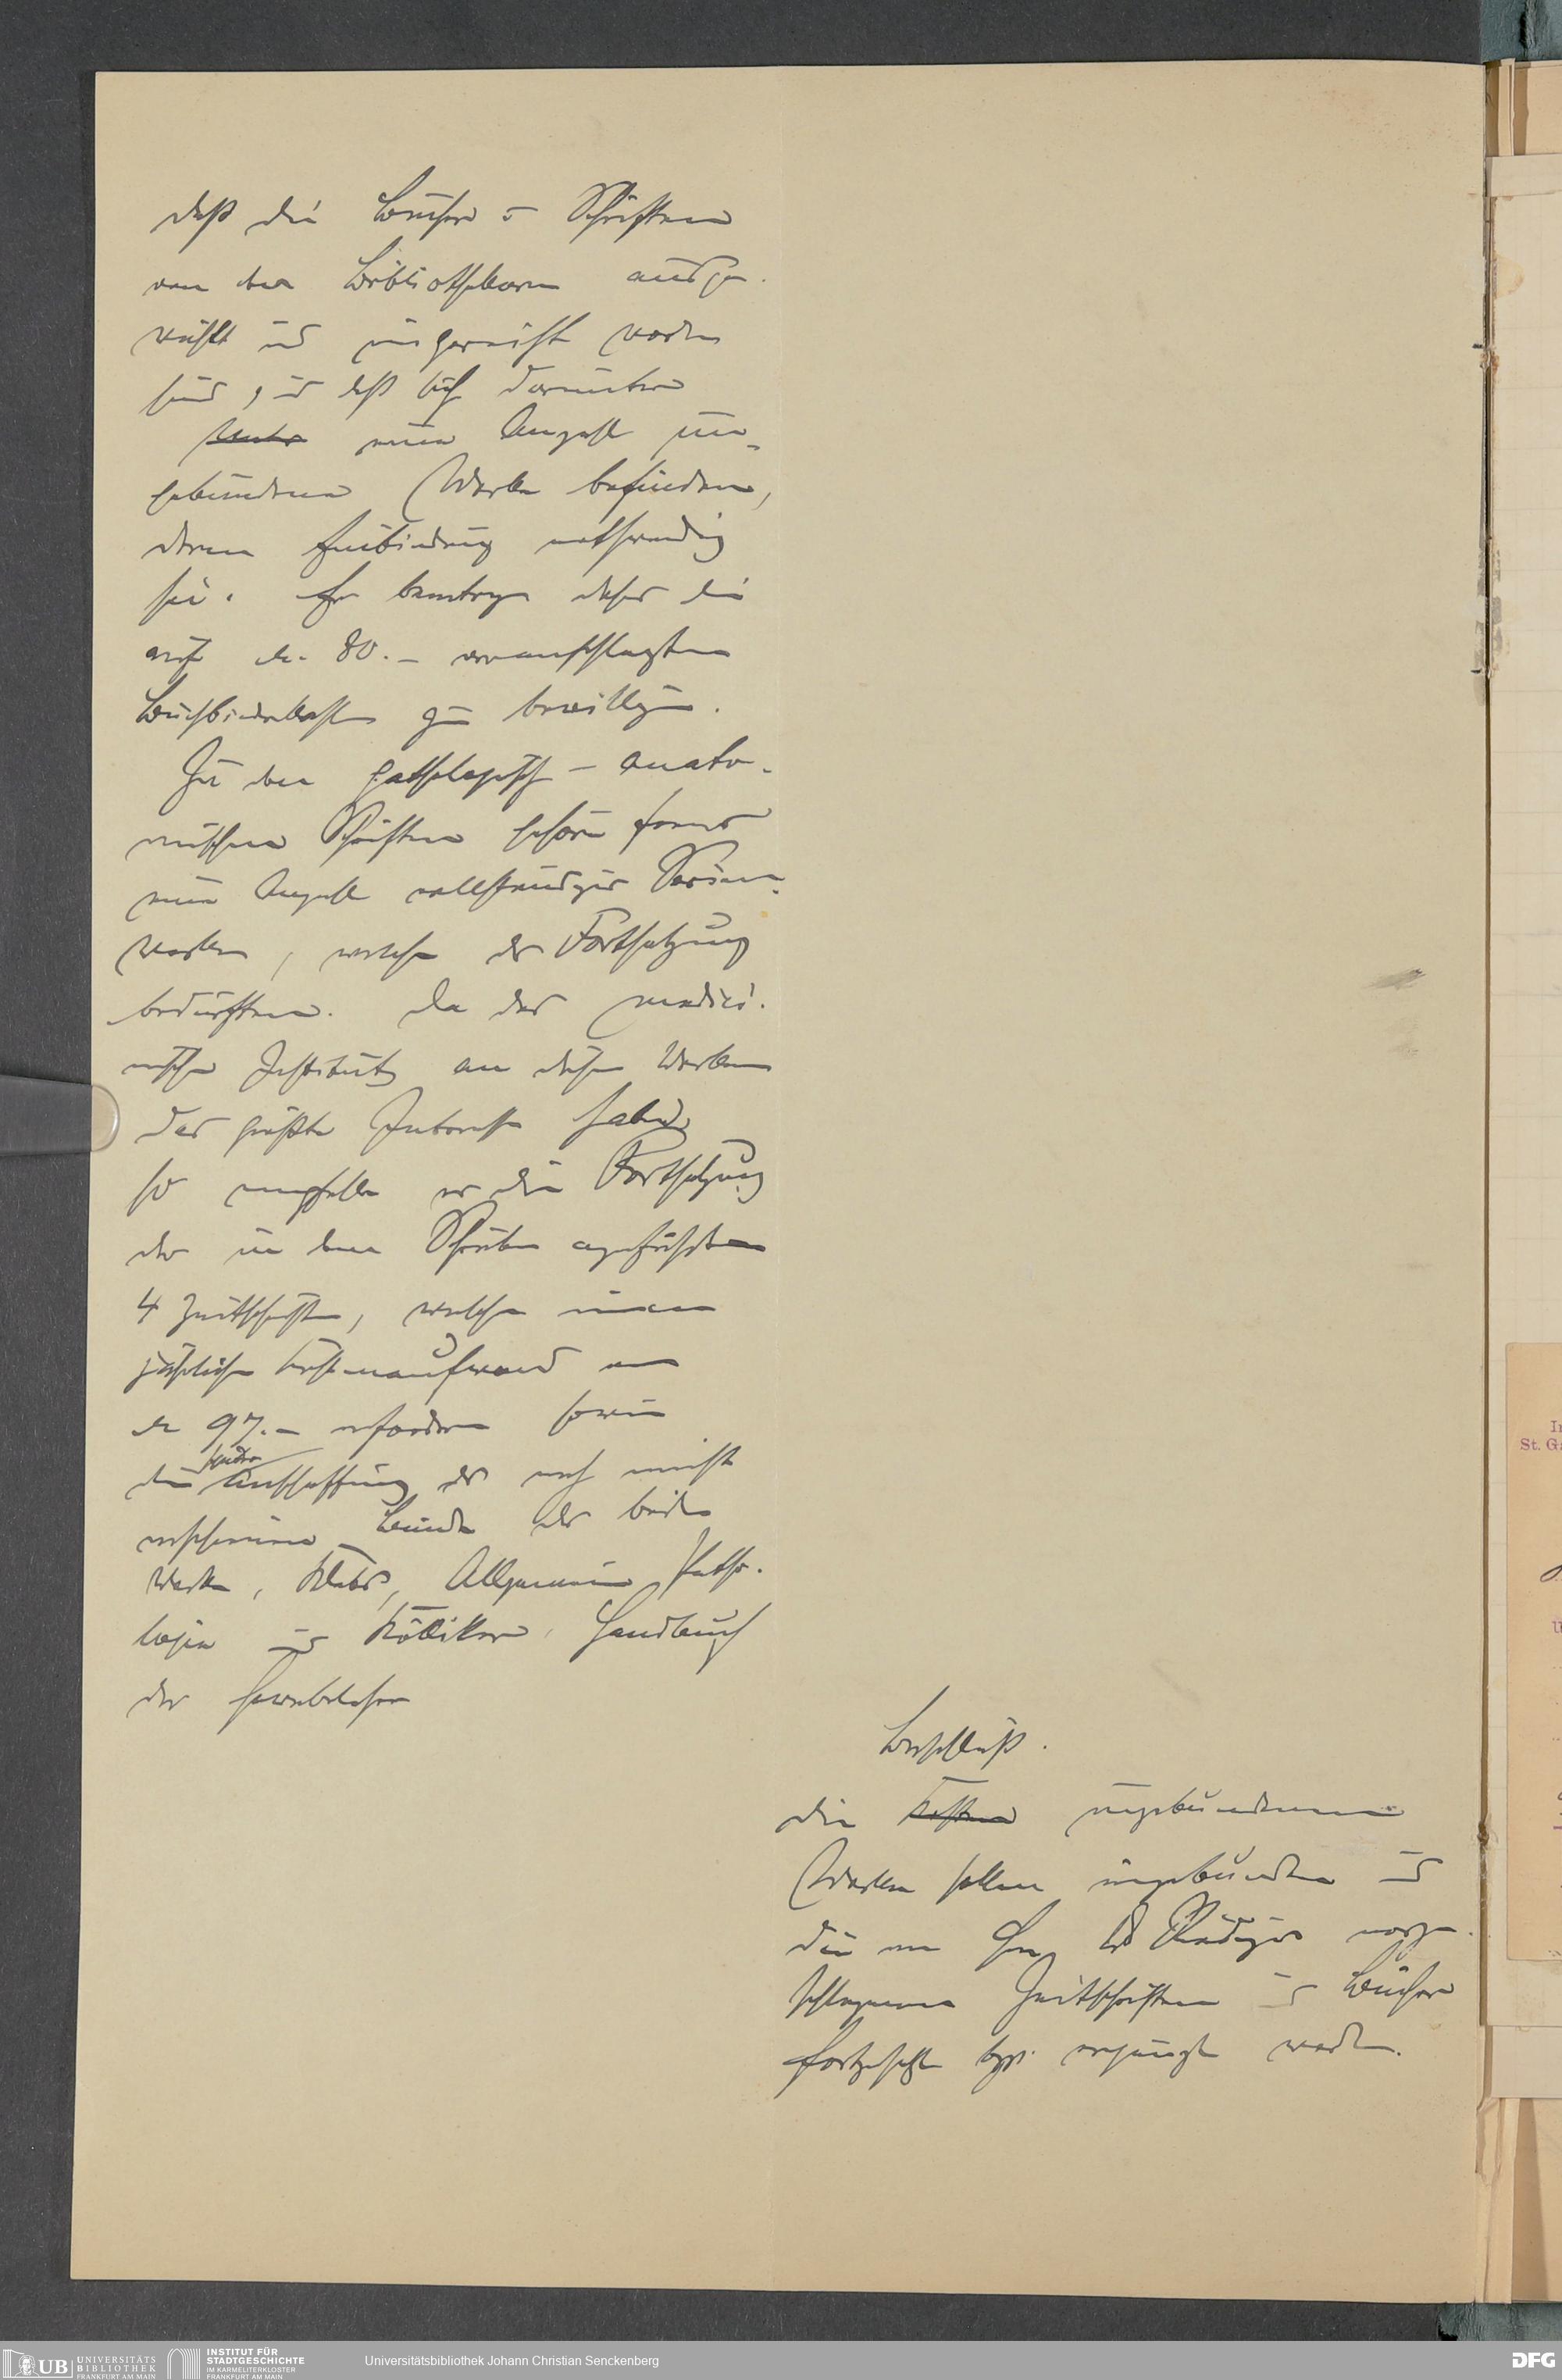 daß die Bücher u. Schriften
von den Bibliothekaren ausge-
wählt und eingereiht worden
sind, und daß sich darunter
eine Anzahl un-
gebundener Werke befinden,
deren Einbindung nothwendig
sei. Er beantrage daher die
auf M. 80.- veranschlagten
Buchbinderkosten zu bewilligen.
Zu den pathologisch-anato-
mischen Schriften gehören ferner
eine Anzahl vollständiger Serien-
werke, welche der Fortsetzung
bedürften. Da das medici-
nische Institut an diesen Werken
das größte Interesse habe,
so empfehle er die Fortsetzung
der in dem Schreiben angeführten
4 Zeitschriften, welche einen
jährlichen Kostenaufwand von
M 97.- erfordern sowie
die Anschaffung der noch nicht
erschienenen Bände der beiden
Werke, Klebs, Allgemeine Patho-
logie und Kölliker, Handbuch
der Gewebelehre
Beschluß.
Die Kosten ungebundenen
Werke sollen eingebunden und
die von Hrn Dr Rödiger vorge-
schlagenen Zeitschriften und Bücher
fortgesetzt bzw. ergänzt werden.
In
St. Ga
UB UNIVERSITÄTS
BIBLIOTHEK
FRANKFURT AM MAIN
INSTITUT FÜR
STADTGESCHICHTE
IM KARMELITERKLOSTER
FRANKFURT AM MAIN
Universitätsbibliothek Johann Christian Senckenberg
DFG